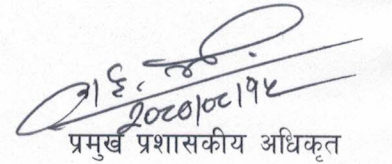 २०८०/०८/१५
प्रमुख प्रशासकीय अधिकृत